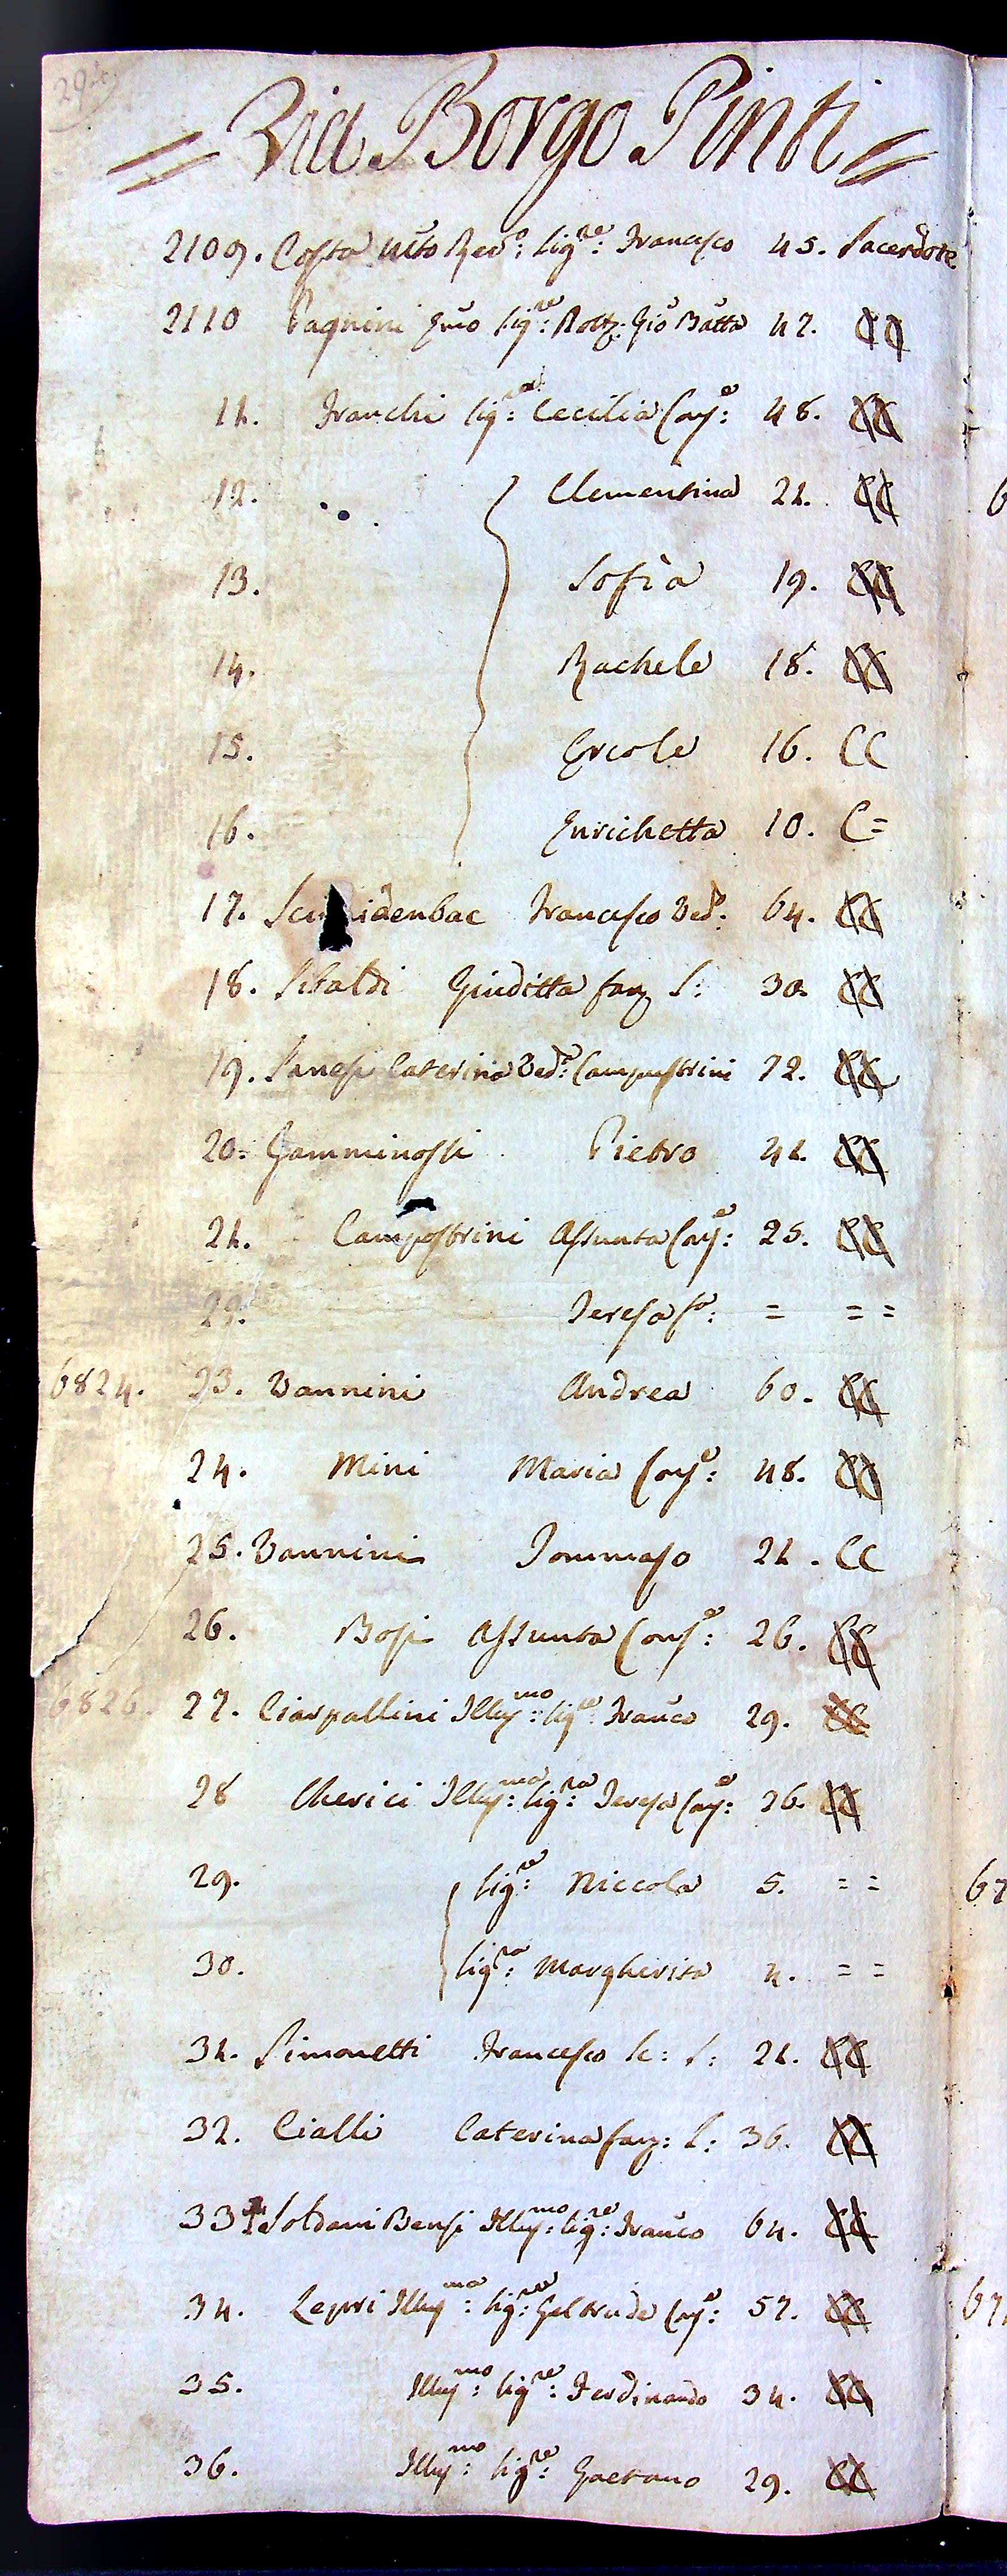 = Via Borgo Pinti =
2109. Costa Mto Revo: Sigre: Francesco 45. Sacerdote
2110 Pagnini Sigre: Gio Batta 47. CC
11. Franchi Siga: Cecilia Conje: 48. CC
12. Clementina 21. CC
13. Sofia 19. CC
14. Rachele 18. CC
15. Ercole 16. CC
16. Enrichetta 10. C=
17. Francesco Vedo: 64. CC
18. Sibaldi Giuditta S: 30. CC
19. Sanesi Caterina Veda: Campostrini 72. CC
20. Gamminossi Pietro 41. CC
21. Campostrini Assunta Conje: 25. CC
22. Teresa fa: = = =
6824. 23. Vannini Andrea 60. CC
24. Mini Maria Conje: 48. CC
25. Vannini Tommaso 21. CC
26. Bosi Assunta Conje: 26. CC
6826. 27. Ciaspallini Illusmo: Sigre: Franco 29. CC
28 Cherici Illusma: Sigra: Teresa Conje: 26. CC
29. Sigre: Niccola 5. = =
30. Sigra: Margherita 4. = =
31. Simonetti Francesco S: 21. CC
32. Cialli Caterina S: 36. CC
33 Soldani Bensi Illusmo: Sigre: Franco 64. CC
34. Lepri Illusma: Sigra: Geltrude Conje: 57. CC
35. Illusmo: Sigre: Ferdinando 34. CC
36. Illusmo: Sigre: Gaetano 29. CC